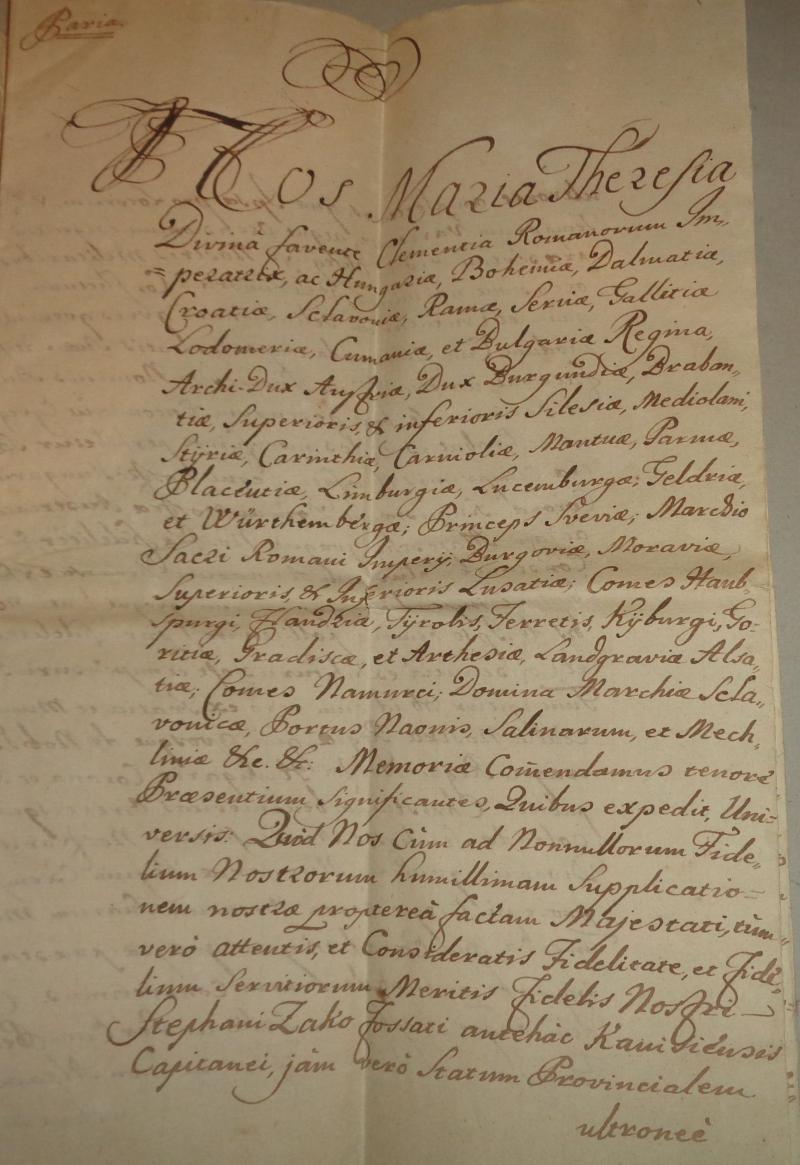 Paria.
Nos Maria Theresia
Divinâ favente Clementia Romanorum Im„
=peratrix, ac Hungariæ, Bohemiæ, Dalmatiæ,
Croatiæ, Sclavoniæ, Ramæ, Serviæ, Gallitiæ
Lodomeriæ, Cumaniæ, et Bulgariæ Regina,
Archi-Dux Austriæ, Dux Burgundiæ, Braban„
tiæ, Superioris, & inferioris Silesiæ, Mediolani,
Stÿriæ, Carinthiæ, Carnioliæ, Mantuæ, Parmæ,
Placéntiæ, Limburgiæ, Lucemburgæ; Geldriæ,
et Würthembérgæ; Princeps Sveviæ; Marchio
Sacri Romani Imperÿ, Burgoviæ, Moraviæ,
Superioris, & Inferioris Lusatiæ; Comes Haub-
spurgi, Flandriæ, Tÿrolis, Ferretis, Kÿburgi, Go-
ritiæ, Gradiscæ, et Arthesiæ, Landgraviæ Alsa„
tiæ; Comes Namurci; Domina Marchiæ Scla„
vonicæ, Portus Naonis, Salinarum, et Mech„
liniæ &c. &c: Memoriæ Com̄endamus tenore
Præsentium significantes, Quibus expedit, Uni-
versis: Quod Nos cùm ad Nonnullorum Fide„
lium Nostrorum humillimam Supplicatio=
nem nostræ proptereà factam Majestati, tùm„
verò attentis, et Consideratis Fidelitate, et fidé„
lium Servitiorum Meritis fidelis Nostri
Stephani Zako fossati antehàc Kanisiénsis
Capitanei, jàm verò Statum Provincialem
ultroneè